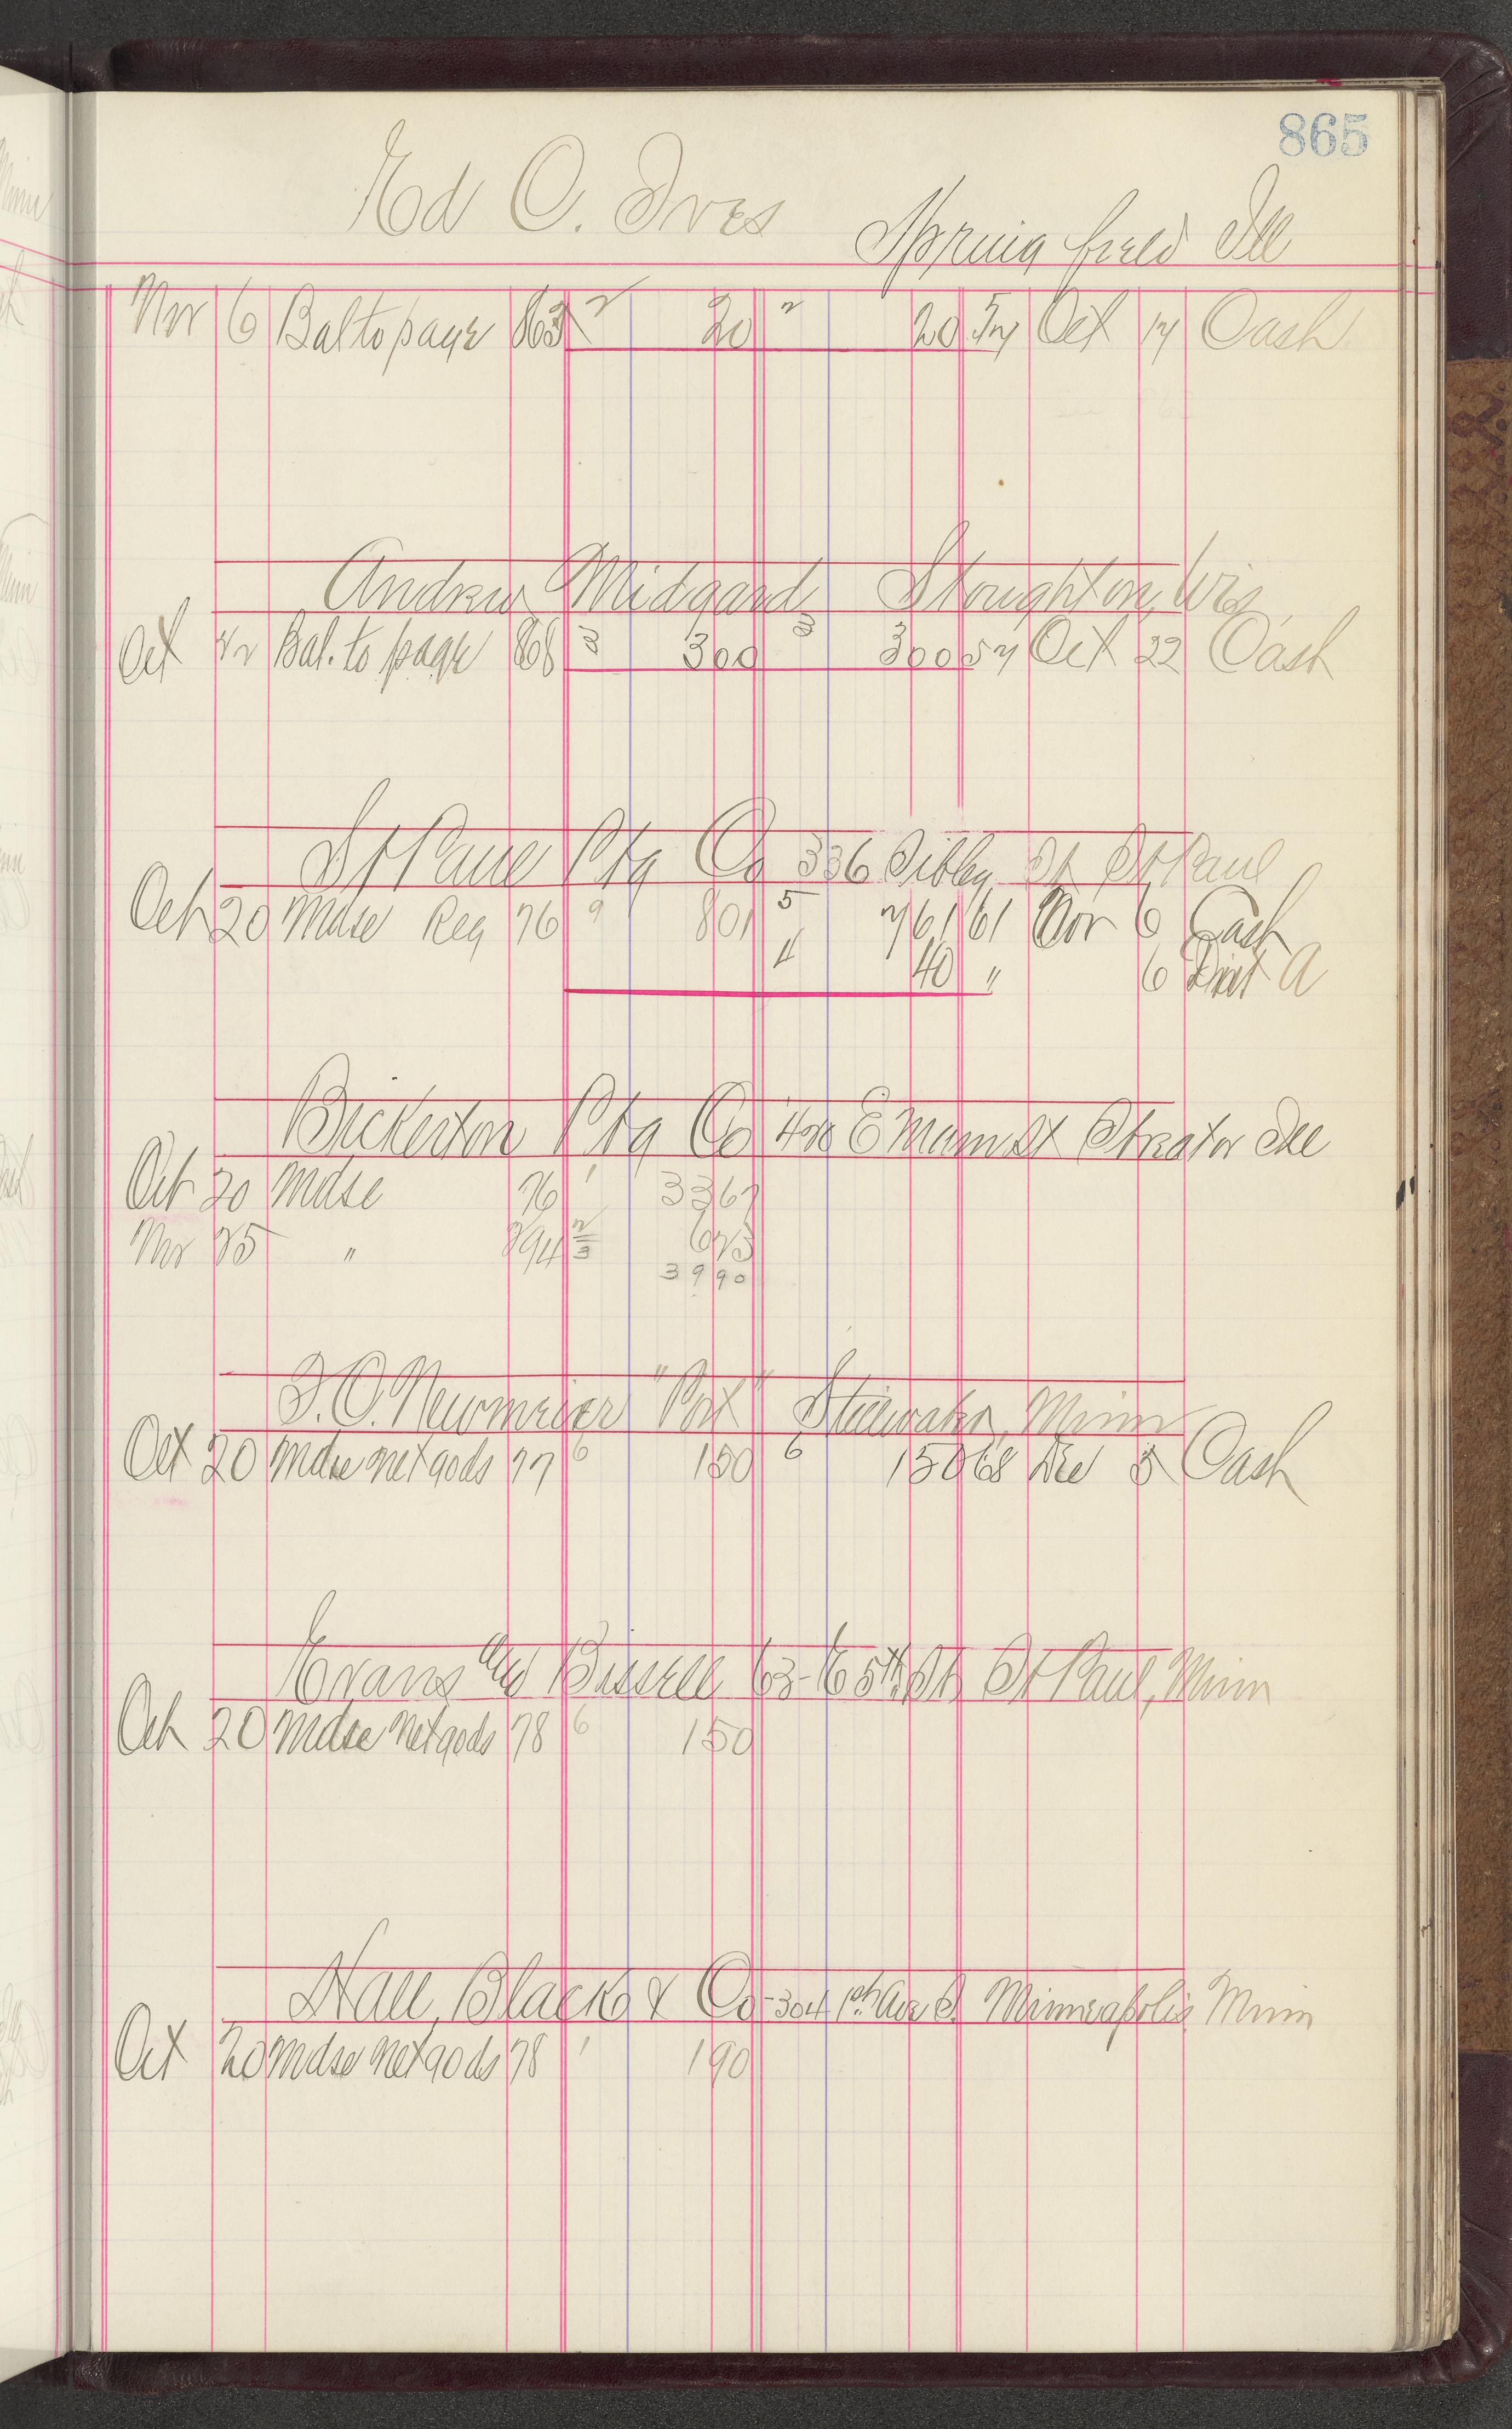 865
Ed O. Ives Springfield Ill
Nov 6 Bal to page 863 2 20 2 20 57 Oct 17 Cash
Andrew Midgard Stoughton, Wis
Oct 22 Bal. to page 868 3 300 3 300 57 Oct 22 Cash
St Paul Ptg Co 336 Sibley St St Paul
Oct 20 Mdse Reg 76 9 801 5 761 61 Nov 6 Cash
4 40 " 6 Disct A
Bickerton Ptg Co E Main St Streator Ill
Oct 20 Mdse 76 1 3367
Nov 25 " 894 2 623
3 3990
F. C. Neumeier "Post" Stillwater, Minn
Oct 20 Mdse net gods 77 6 150 6 150 68 Dec 5 Cash
Evans and Bissell 63-65th St St Paul, Minn
Oct 20 Mdse net gods 78 6 150
Hall, Black & Co - 304 1st Ave S. Minneapolis Minn
Oct 20 Mdse net gods 78 1 190